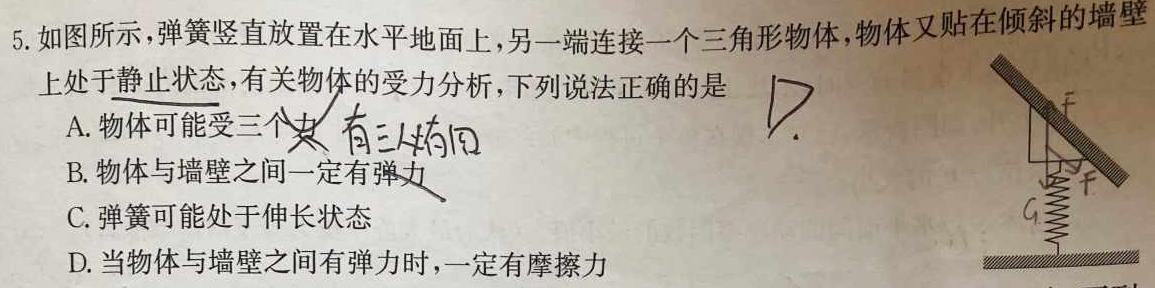 5. 如图所示,弹簧竖直放置在水平地面上,另一端连接一个三角形物体,物体又贴在倾斜的墙壁
上处于静止状态,有关物体的受力分析,下列说法正确的是 D.
A. 物体可能受三个力 有三必有四
B. 物体与墙壁之间一定有弹力
C. 弹簧可能处于伸长状态
D. 当物体与墙壁之间有弹力时,一定有摩擦力
F
F
G